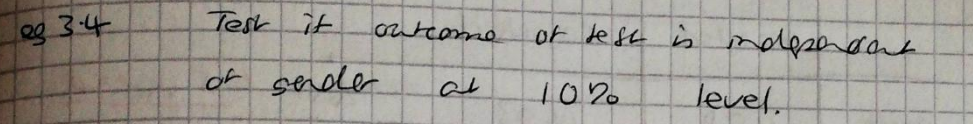 eg 3.4 Test if outcome of test is independent
of gender at 10% level.